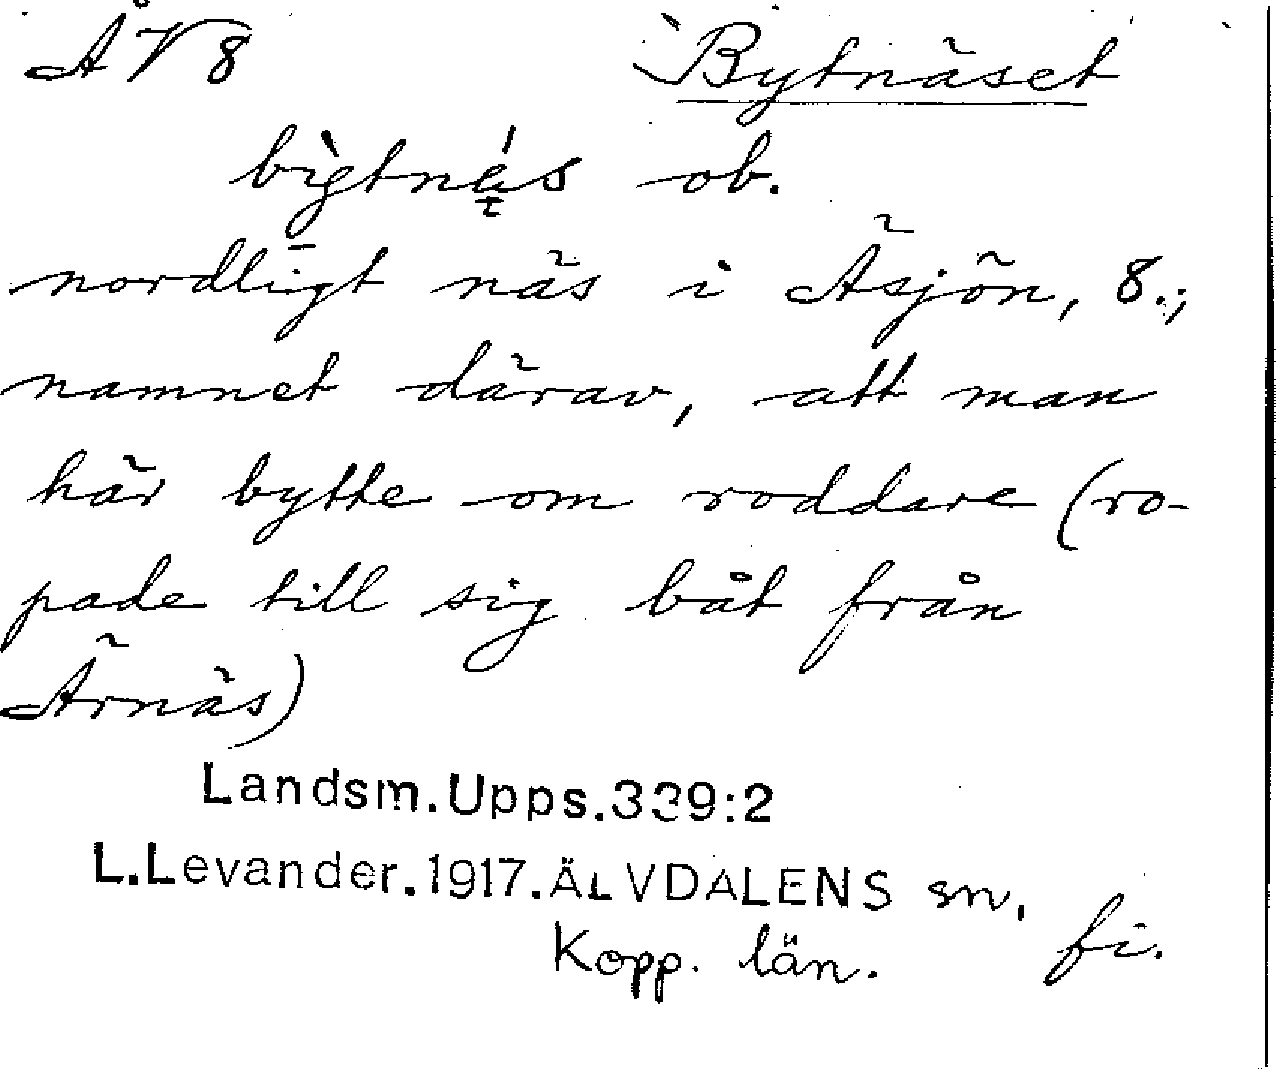 ÅV8 Bytnäset
bìgtnä́s ob.
nordligt näs i Äsjön, 8.;
namnet därav, att man
här bytte om roddare (ro-
pade till sig båt från
Ärnäs)
Landsm.Upps.339:2
L.Levander.1917.ÄLVDALENS sn,
Kopp. län. fi.